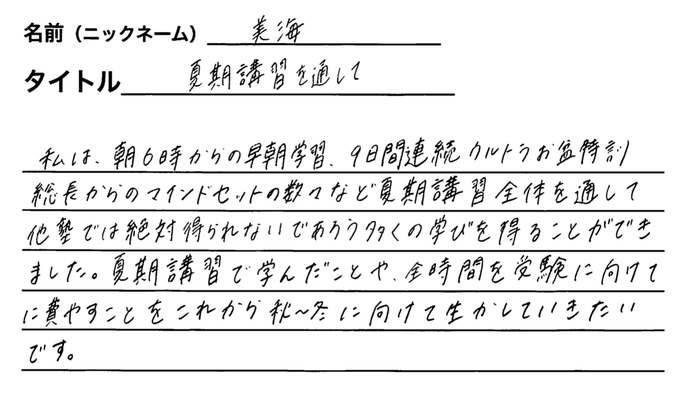 名前（ニックネーム） 美海
タイトル 夏期講習を通して
私は、朝6時からの早朝学習、9日間連続ウルトラお盆特訓
総長からのマインドセットの数々など夏期講習全体を通して
他塾では絶対得られないであろう多くの学びを得ることができ
ました。夏期講習で学んだことや、全時間を受験に向けて
に費やすことをこれから秋〜冬に向けて生かしていきたい
です。